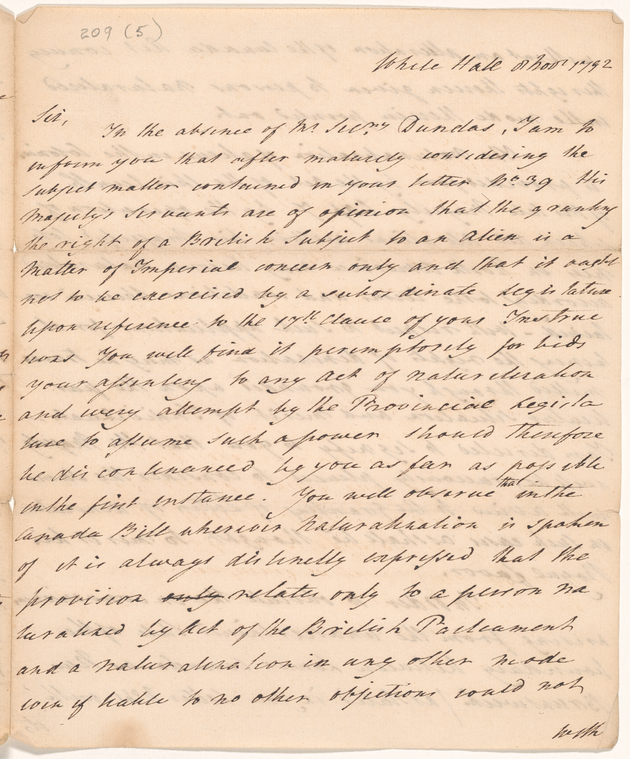 209 (5)
White Hall 8 Novr 1792
Sir,
In the absence of Mr. Secry Dundas, I am to
inform you that after maturely considering the
subject matter contained in your letter No. 39 His
Majesty's Servants are of opinion that the granting
the right of a British Subject to an Alien is a
Matter of Imperial concern only and that it ought
not to be exercised by a subordinate Legislature
Upon reference to the 17th Clause of your Instruc
tions You will find it peremptorily forbids
your assenting to any Act of naturalization
and every attempt by the Provincial Legisla
ture to assume such a power should therefore
be discountenanced by you as far as possible
in the first instance. You will observe that in the
Canada Bill wherever Naturalization is spoken
of it is always distinctly expressed that the
provision only relates only to a person na
turalized by Act of the British Parliament
and a naturalization in any other mode
even if liable to no other objections could not
with